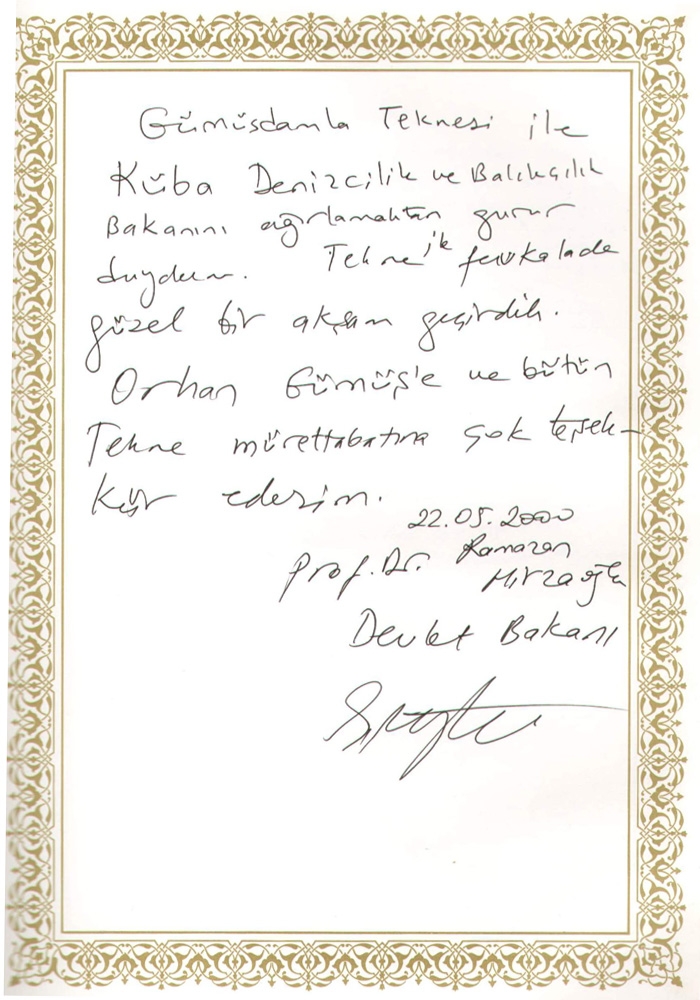 Gümüşdamla Teknesi ile
Küba Denizcilik ve Balıkçılık
Bakanını ağırlamaktan gurur
duydum. Tekne ile fevkalade
güzel bir akşam geçirdik.
Orhan Gümüş'e ve bütün
Tekne mürettabatına çok teşek-
kür ederim.
22.05.2000
Prof. Dr. Ramazan
Mirzaoğlu
Devlet Bakanı